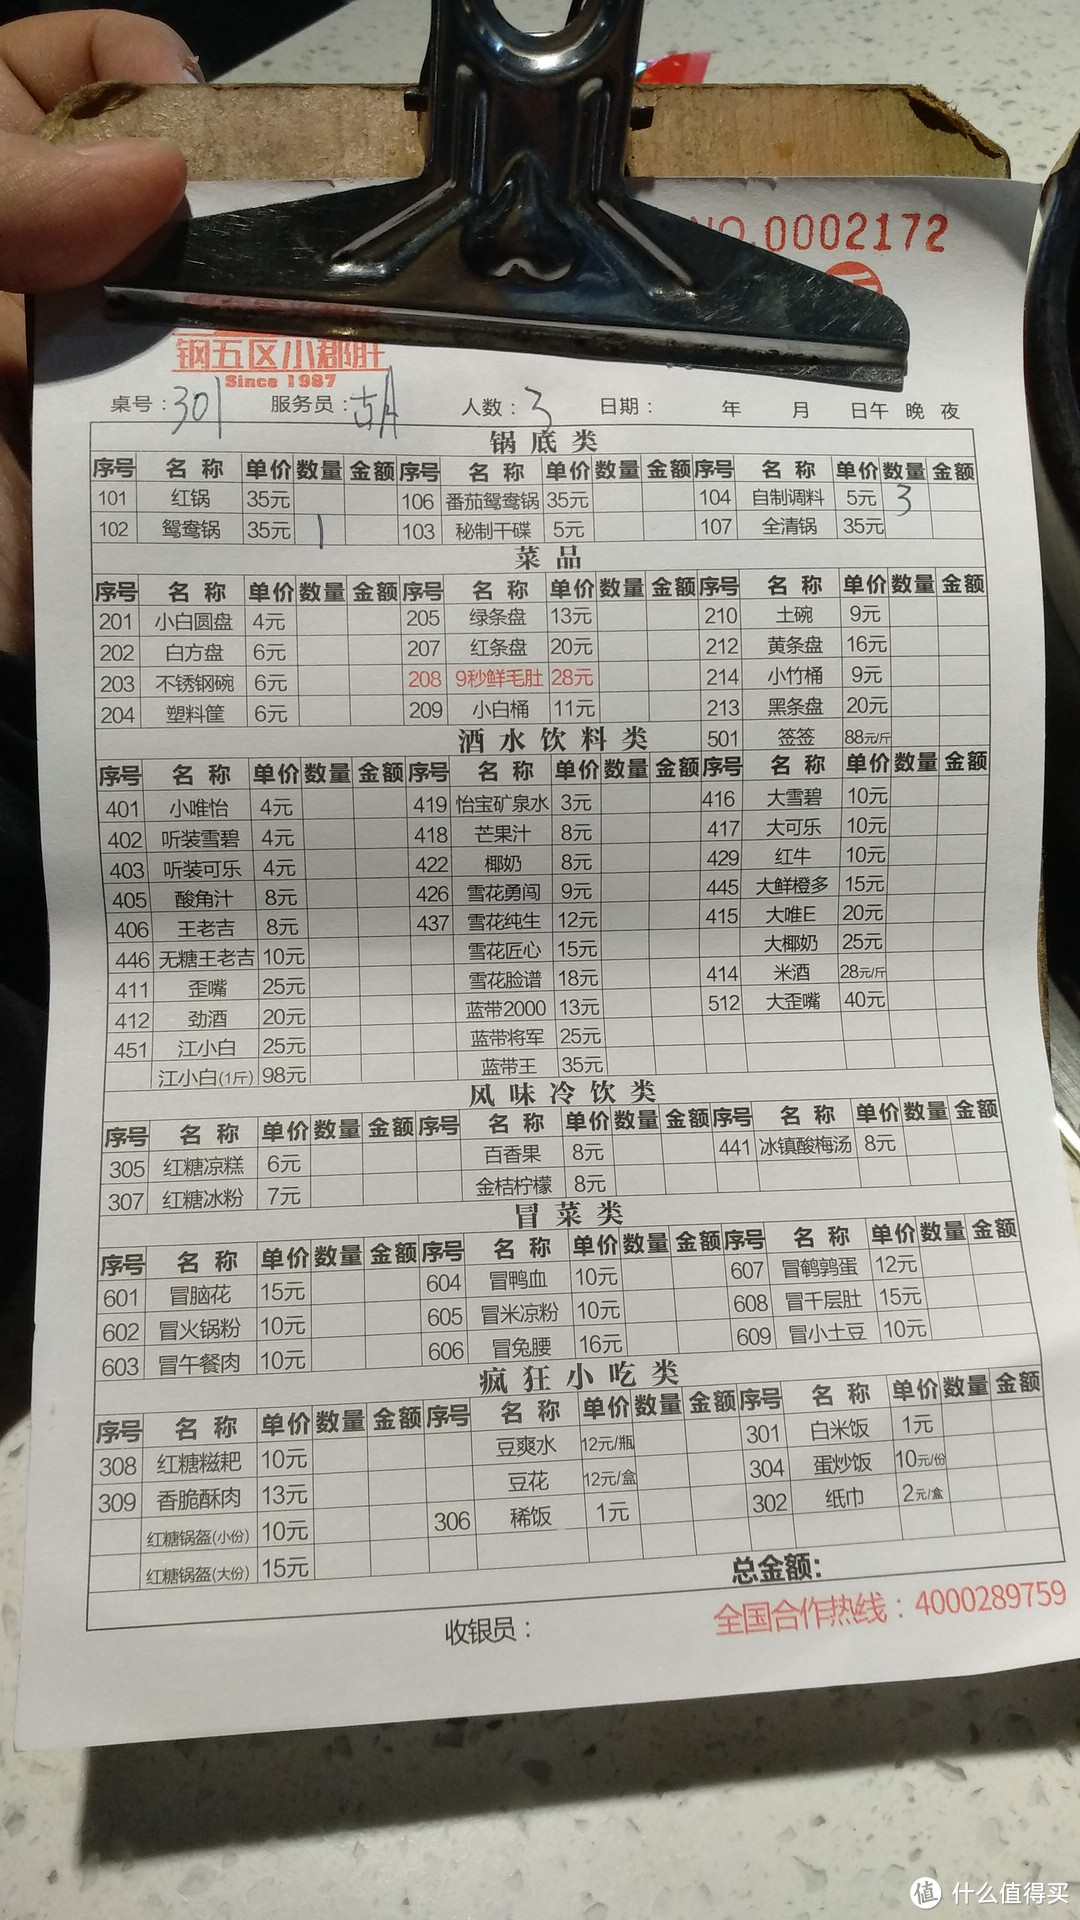 NO.0002172
钢五区小郡肝
Since 1987
桌号：301 服务员： 人数：3 日期： 年 月 日午 晚 夜
锅底类
序号 名称 单价 数量 金额 序号 名称 单价 数量 金额 序号 名称 单价 数量 金额
101 红锅 35元 106 番茄鸳鸯锅 35元 104 自制调料 5元 3
102 鸳鸯锅 35元 1 103 秘制干碟 5元 107 全清锅 35元
菜品
序号 名称 单价 数量 金额 序号 名称 单价 数量 金额 序号 名称 单价 数量 金额
201 小白圆盘 4元 205 绿条盘 13元 210 土碗 9元
202 白方盘 6元 207 红条盘 20元 212 黄条盘 16元
203 不锈钢碗 6元 208 9秒鲜毛肚 28元 214 小竹桶 9元
204 塑料筐 6元 209 小白桶 11元 213 黑条盘 20元
酒水饮料类 501 签签 88元/斤
序号 名称 单价 数量 金额 序号 名称 单价 数量 金额 序号 名称 单价 数量 金额
401 小唯怡 4元 419 怡宝矿泉水 3元 416 大雪碧 10元
402 听装雪碧 4元 418 芒果汁 8元 417 大可乐 10元
403 听装可乐 4元 422 椰奶 8元 429 红牛 10元
405 酸角汁 8元 426 雪花勇闯 9元 445 大鲜橙多 15元
406 王老吉 8元 437 雪花纯生 12元 415 大唯E 20元
446 无糖王老吉 10元 雪花匠心 15元 大椰奶 25元
411 歪嘴 25元 雪花脸谱 18元 414 米酒 28元/斤
412 劲酒 20元 蓝带2000 13元 512 大歪嘴 40元
451 江小白 25元 蓝带将军 25元
江小白(1斤) 98元 蓝带王 35元
风味冷饮类
序号 名称 单价 数量 金额 序号 名称 单价 数量 金额 序号 名称 单价 数量 金额
305 红糖凉糕 6元 百香果 8元 441 冰镇酸梅汤 8元
307 红糖冰粉 7元 金桔柠檬 8元
冒菜类
序号 名称 单价 数量 金额 序号 名称 单价 数量 金额 序号 名称 单价 数量 金额
601 冒脑花 15元 604 冒鸭血 10元 607 冒鹌鹑蛋 12元
602 冒火锅粉 10元 605 冒米凉粉 10元 608 冒千层肚 15元
603 冒午餐肉 10元 606 冒兔腰 16元 609 冒小土豆 10元
疯狂小吃类
序号 名称 单价 数量 金额 序号 名称 单价 数量 金额 序号 名称 单价 数量 金额
308 红糖糍粑 10元 豆爽水 12元/瓶 301 白米饭 1元
309 香脆酥肉 13元 豆花 12元/盒 304 蛋炒饭 10元/份
红糖锅盔(小份) 10元 306 稀饭 1元 302 纸巾 2元/盒
红糖锅盔(大份) 15元
总金额：
收银员： 全国合作热线：4000289759
值 什么值得买